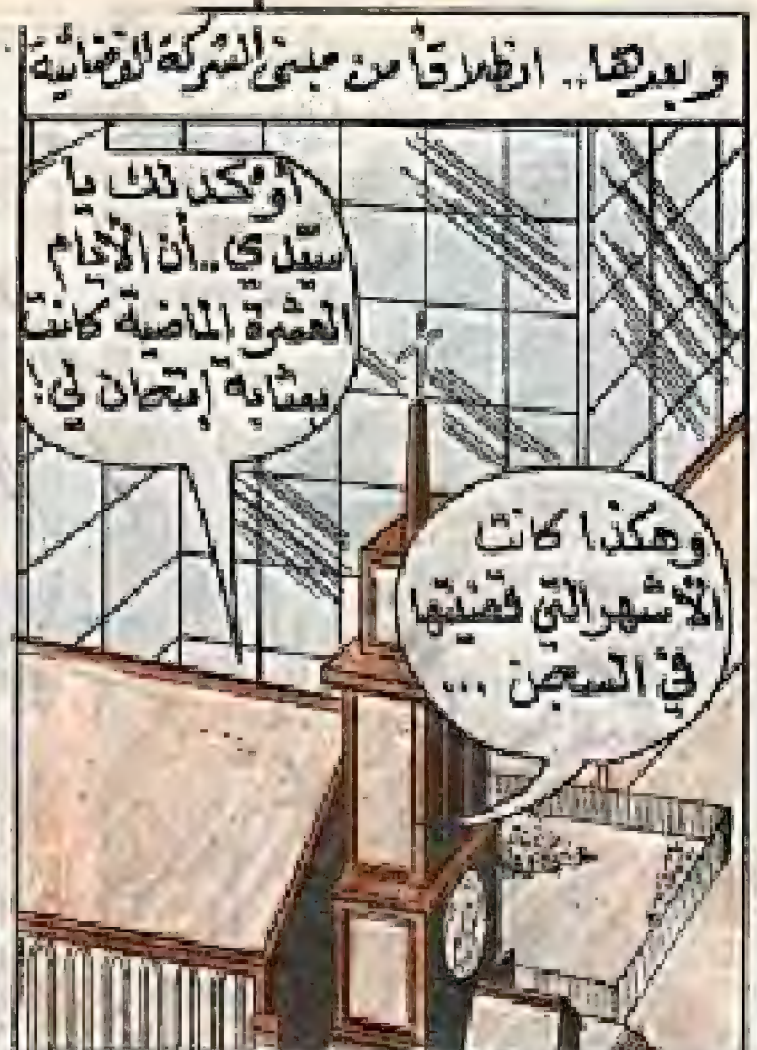 وبعدها.. انطلاقاً من مبنى الشركة القضائية
أؤكد لك يا
سيّدي.. أن الأيام
العشرة الماضية كانت
بمثابة إمتحان لي!
وهكذا كانت
الأشهر التي قضيتها
في السجن ...